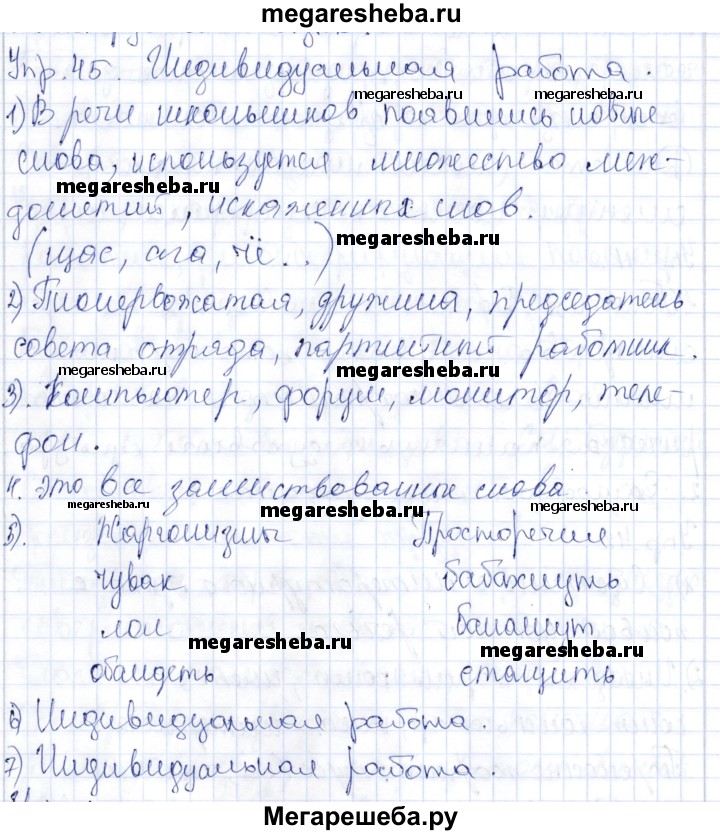 megaresheba.ru
Упр. 45. Индивидуальная работа.
megaresheba.ru megaresheba.ru
1) В речи школьников появились новые
слова, используется множество меж-
megaresheba.ru
дометий, искаженных слов.
megaresheba.ru
(щас, ага, чё...)
2) Пионервожатая, дружина, председатель
совета отряда, партийный работник.
megaresheba.ru megaresheba.ru
3). Компьютер, форум, монитор, теле-
фон.
4. Это все заимствованные слова.
megaresheba.ru megaresheba.ru megaresheba.ru
5). Жаргонизмы Просторечия
чувак бабахнуть
лол
megaresheba.ru megaresheba.ru
обалдеть
6) Индивидуальная работа.
7) Индивидуальная работа.
Мегарешеба.ру